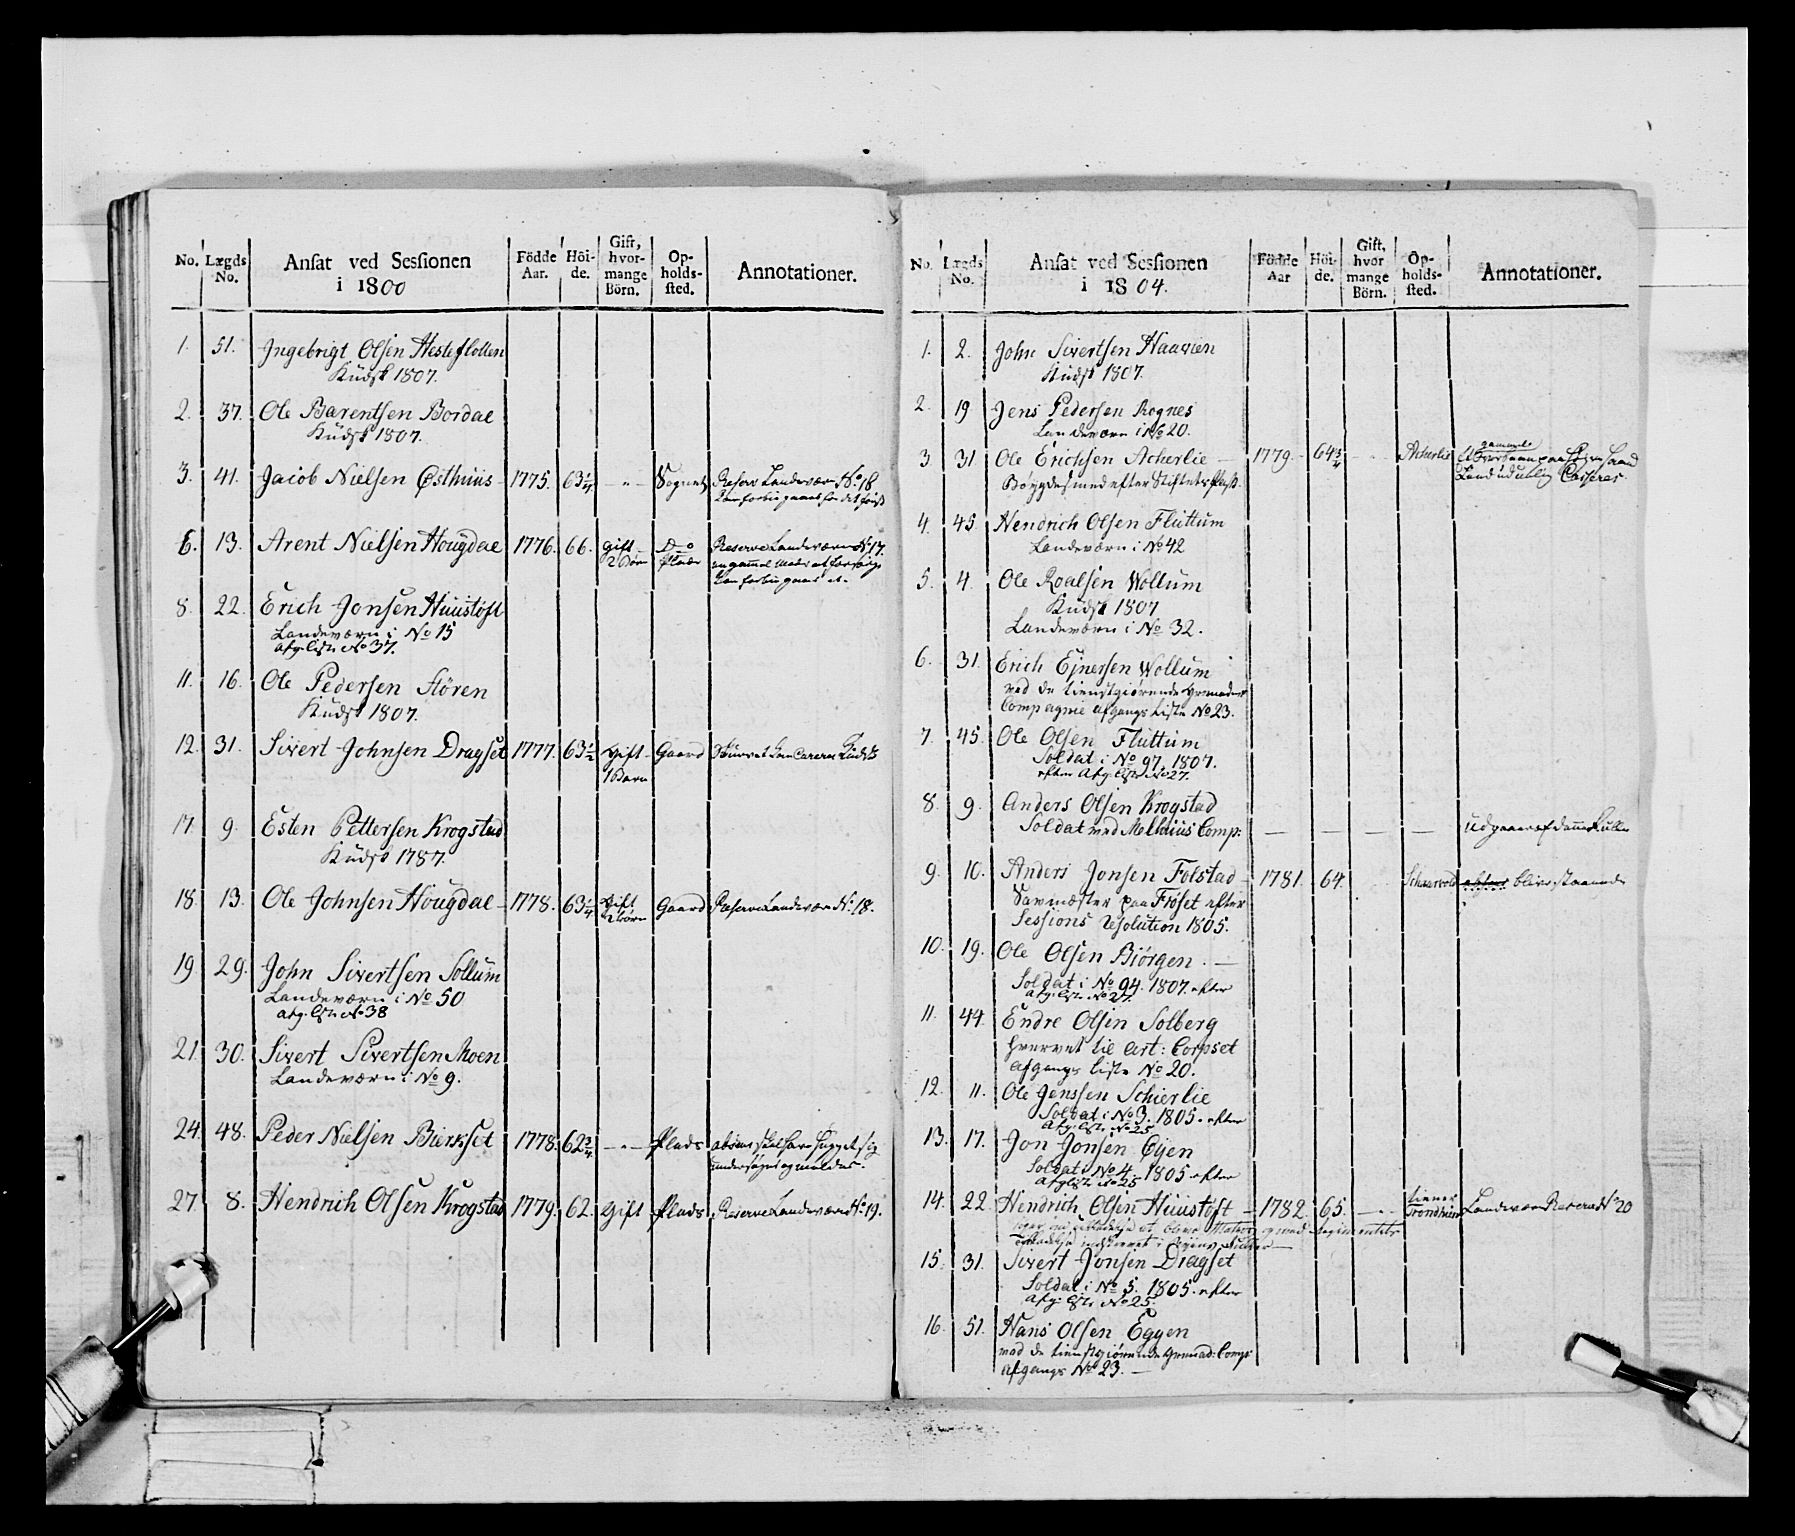 No. Lægds No. Ansat ved Sessionen i 1800 Födde Aar. Höi-de. Gift, hvor-mange Börn. Op-holds-sted. Annotationer.
1. 51. Ingebrigt Olsen Hesteflotten
Kudsk 1807.
2. 37. Ole Barentsen Bordal
Kudsk 1807.
3. 41. Jacob Nielsen Østhuus 1775. 63 1/4 - " - Sognet Reserv Landeværn No. 18
6. 13. Arent Nielsen Hougdal 1776. 66. gift 2 Børn Do Reserve Landeværn No 17.
8. 22. Erich Jonsen Huustoft
Landeværn i No 15
Afg. Lste No 37.
11. 16. Ole Pedersen Støren
Kudsk 1807.
12. 31. Sivert Johnsen Dragset 1777. 63 1/2 Gift 1 Barn Gaard
17. 9. Esten Pettersen Krogstad
Kudsk 1787.
18. 13. Ole Johnsen Hougdal 1778. 63 1/4 Gift 2 børn Gaard Reserve Landeværn No. 18.
19. 29. John Sivertsen Sollum
Landeværn i No 50
Afg. Lste No 38
21. 30. Sivert Sivertsen Moen
Landeværn i No 9.
24. 48. Peder Nielsen Bierkset 1778. 62 3/4 - " - Plads
undersøges og meldes.
27. 8. Hendrich Olsen Krogstad 1779. 62. Gift Plads Reserve Landeværn No. 19.
No. Lægds No. Ansat ved Sessionen i 1804. Födde Aar Höi-de. Gift, hvor mange Börn. Op-holds-sted. Annotationer.
1. 2. John Sivertsen Haavien
Kudsk 1807.
2. 19 Jens Pedersen Rognes
Landeværn i No 20.
3 31 Ole Erichsen Acherlie 1779 64 3/4 Acherlie gammel
Bøygdesmed efter Stiftets Pass. Casseres.
4. 45. Hendrich Olsen Fluttum
Landeværn i No 42
5. 4. Ole Roalsen Wollum
Kudsk 1807
Landeværn i No 32.
6. 31. Erich Ejnersen Wollum
ved de tienstgiørende Grenadeer
Compagnie afgangs Liste No 23.
7. 45. Ole Olsen Fluttum
Soldat i No 97. 1807.
efter Afg. Lste No 27.
8. 9. Anders Olsen Krogstad
Soldat ved Melhuus Comp: — — — — udgaaer af denne Rulle
9. 10. Anders Jonsen Folstad 1781. 64. blive staaende
Savmæster paa Frøset efter
Sessions Resolution 1805.
10. 19. Ole Olsen Biørgen. —
Soldat i No 94. 1807. efter
Afg. Lste No 27.
11. 44. Endre Olsen Solberg
hvervet til Art: Corpset
Afgangs Liste No 20.
12. 11. Ole Jenssen Schierlie
Soldat i No 3. 1805. efter
Afg. Lste No 25
13. 17. Jon Jonsen Eyen
Soldat i No 4. 1805 efter
Afg. Lste No 25
14. 22. Hendrich Olsen Huustoft 1782. 65. tiener Trondhiem Landeværn Reserve No 20
15. 31. Sivert Jonsen Dragset
Soldat i No 5. 1805. efter
Afg: Lste No 25.
16. 51. Hans Olsen Eggen
ved de tienstgiørende Grenad: Comp:
Afgangs No 23. —